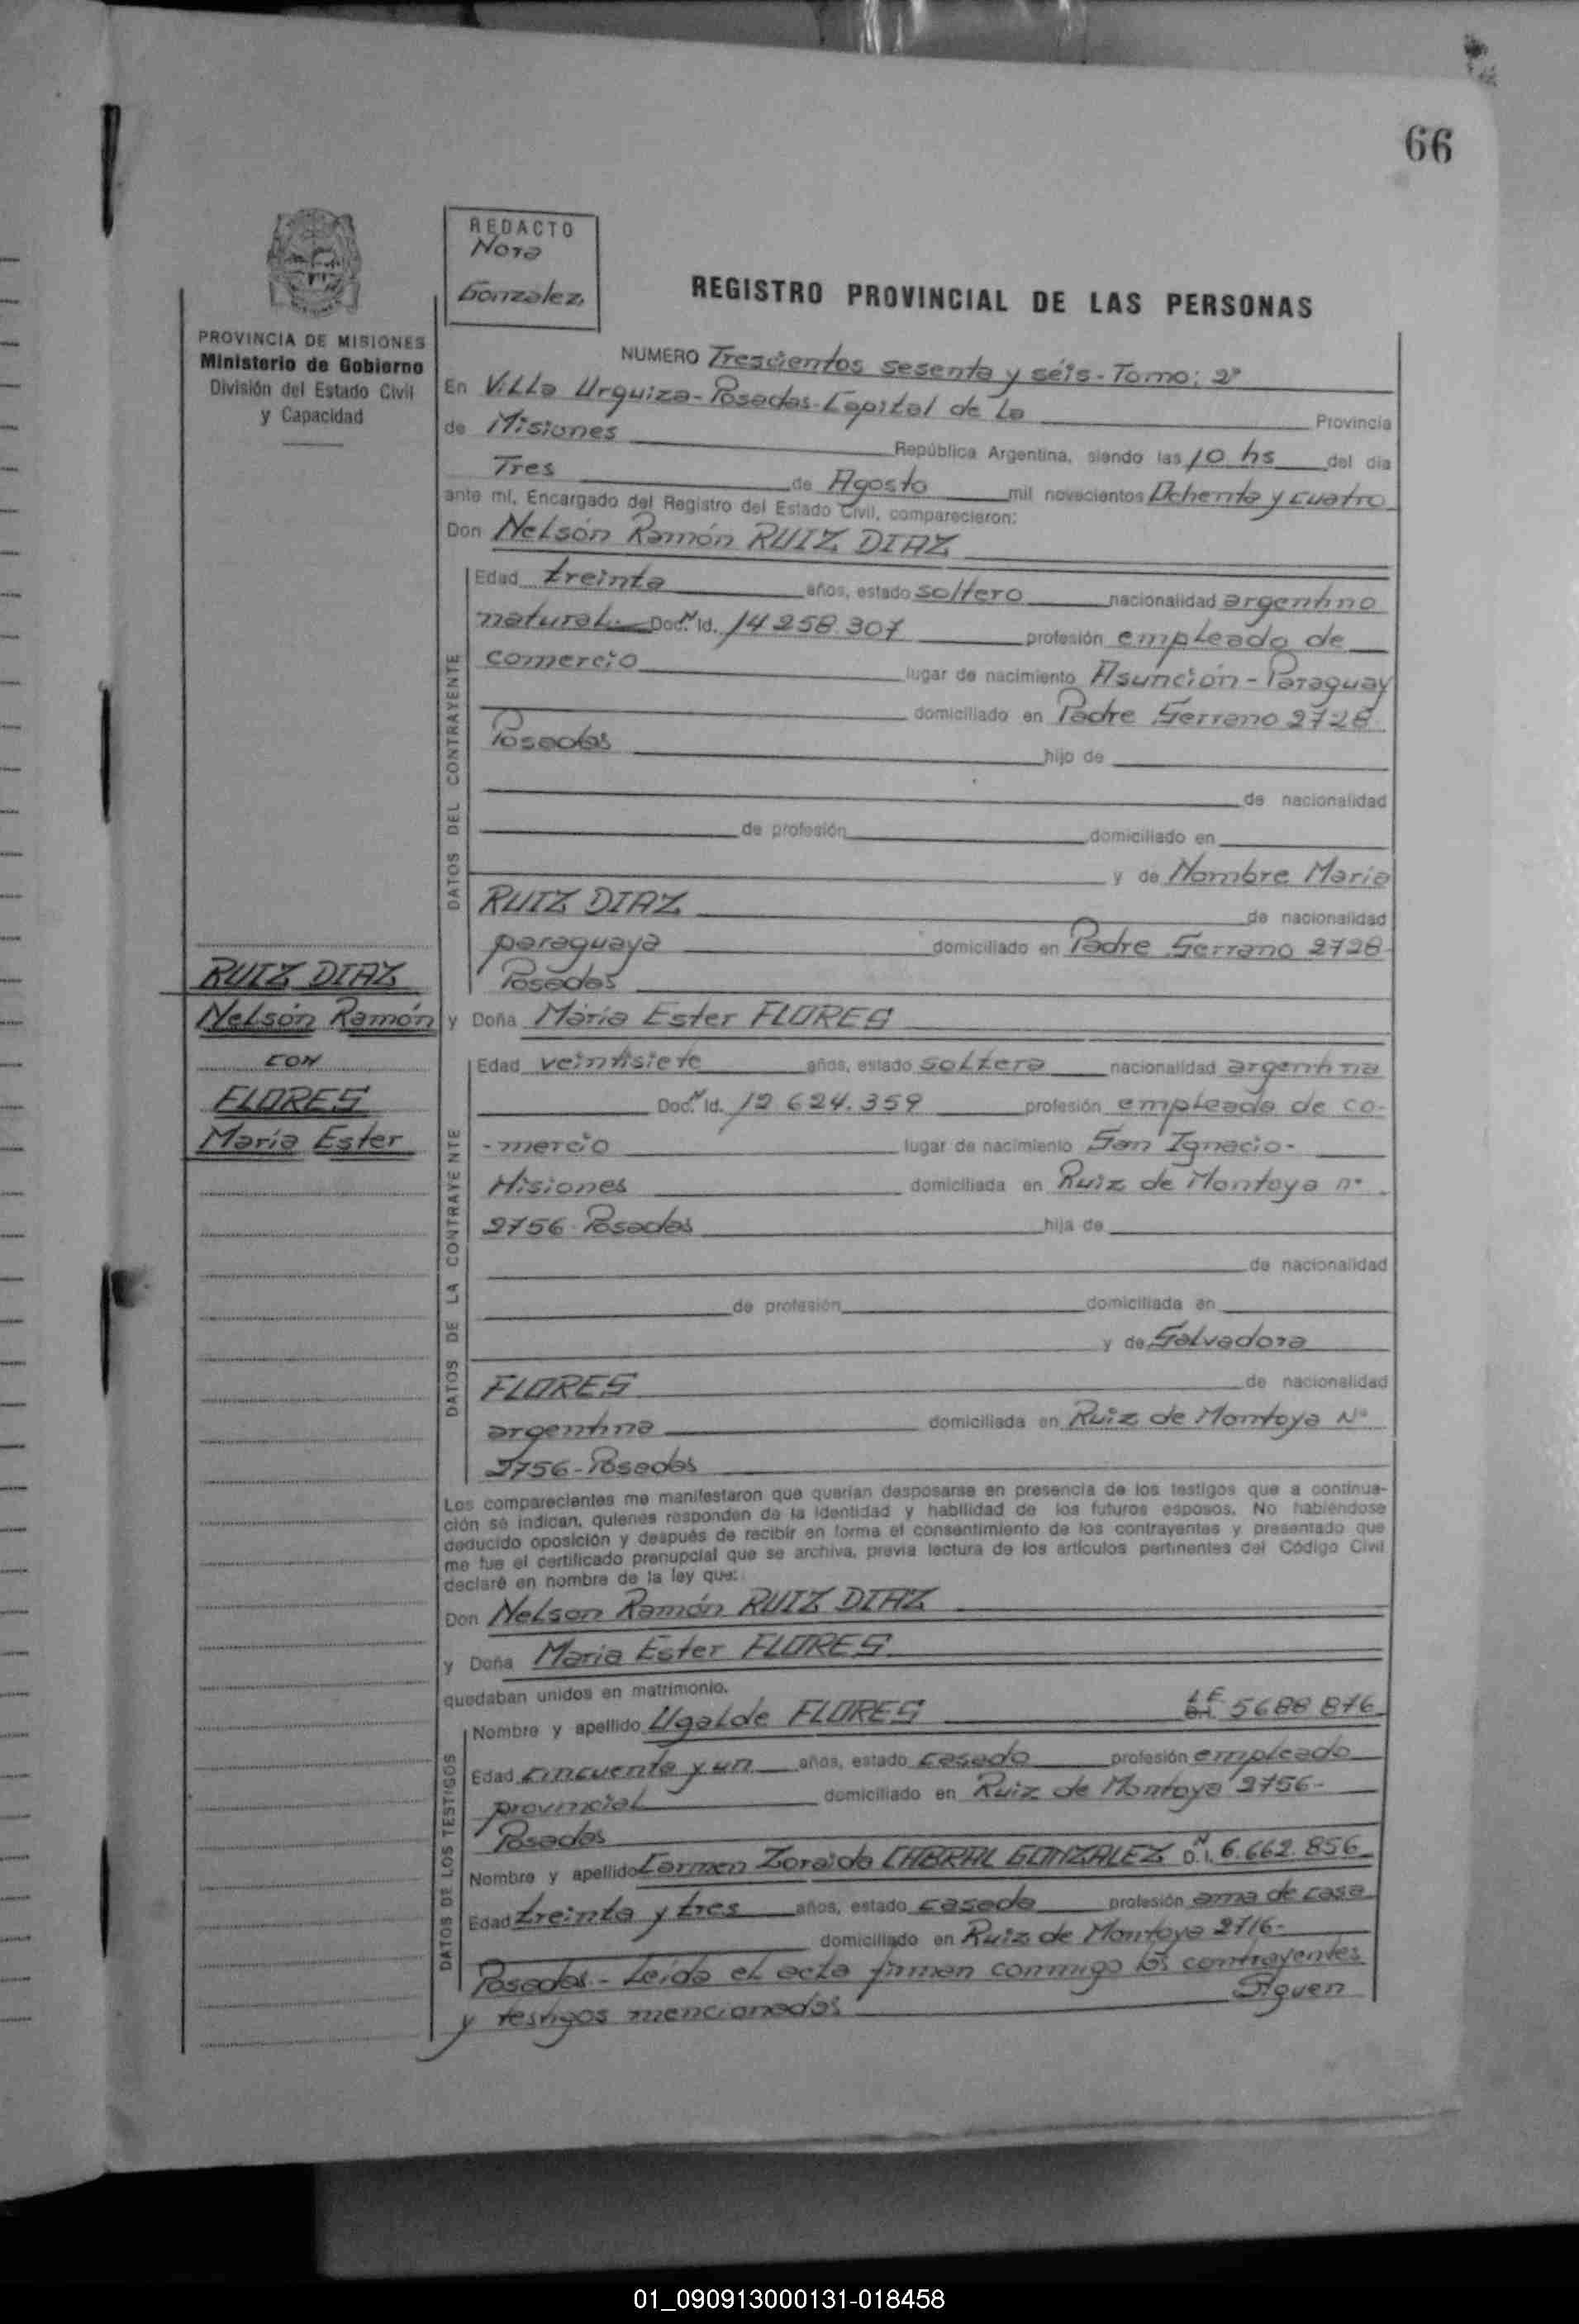 66
REDACTO
Nora
Gonzalez
REGISTRO PROVINCIAL DE LAS PERSONAS
PROVINCIA DE MISIONES
Ministerio de Gobierno
División del Estado Civil
y Capacidad
NUMERO Trescientos sesenta y séis - Tomo: 2º
En Villa Urquiza - Posadas - Capital de La Provincia
de Misiones República Argentina, siendo las 10 hs del día
Tres de Agosto mil novecientos Ochenta y cuatro
ante mí, Encargado del Registro del Estado Civil, comparecieron:
Don Nelsón Ramón RUIZ DIAZ
DATOS DEL CONTRAYENTE
Edad treinta años, estado soltero nacionalidad argentino
natural. Doc. N Id. 14 258.307 profesión empleado de
comercio lugar de nacimiento Asunción - Paraguay
domiciliado en Padre Serrano 2728
Posadas hijo de
de nacionalidad
de profesión domiciliado en
y de Nombre María
RUIZ DIAZ de nacionalidad
paraguaya domiciliado en Padre Serrano 2728
Posadas
RUIZ DIAZ
Nelsón Ramón
CON
FLORES
María Ester
y Doña María Ester FLORES
DATOS DE LA CONTRAYENTE
Edad veintisiete años, estado soltera nacionalidad argentina
Doc. N Id. 12.624.359 profesión empleada de co-
-mercio lugar de nacimiento San Ignacio -
Misiones domiciliada en Ruiz de Montoya nº
2756 - Posadas hija de
de nacionalidad
de profesión domiciliada en
y de Salvadora
FLORES de nacionalidad
argentina domiciliada en Ruiz de Montoya Nº
2756 - Posadas
Los comparecientes me manifestaron que querían desposarse en presencia de los testigos que a continua-
ción se indican, quienes responden de la identidad y habilidad de los futuros esposos. No habiéndose
deducido oposición y después de recibir en forma el consentimiento de los contrayentes y presentado que
me fue el certificado prenupcial que se archiva, previa lectura de los artículos pertinentes del Código Civil
declaré en nombre de la ley que:
Don Nelson Ramón RUIZ DIAZ
y Doña María Ester FLORES
quedaban unidos en matrimonio.
DATOS DE LOS TESTIGOS
Nombre y apellido Ugalde FLORES L.E 5688 876
Edad cincuenta y un años, estado casado profesión empleado
provincial domiciliado en Ruiz de Montoya 2756 -
Posadas
Nombre y apellido Carmen Zoraida CABRAL GONZALEZ D.N.I. 6.662.856
Edad treinta y tres años, estado casada profesión ama de casa
domiciliado en Ruiz de Montoya 2716 -
Posadas - Leída el acta firman conmigo los contrayentes
y testigos mencionados Siguen
01_090913000131-018458